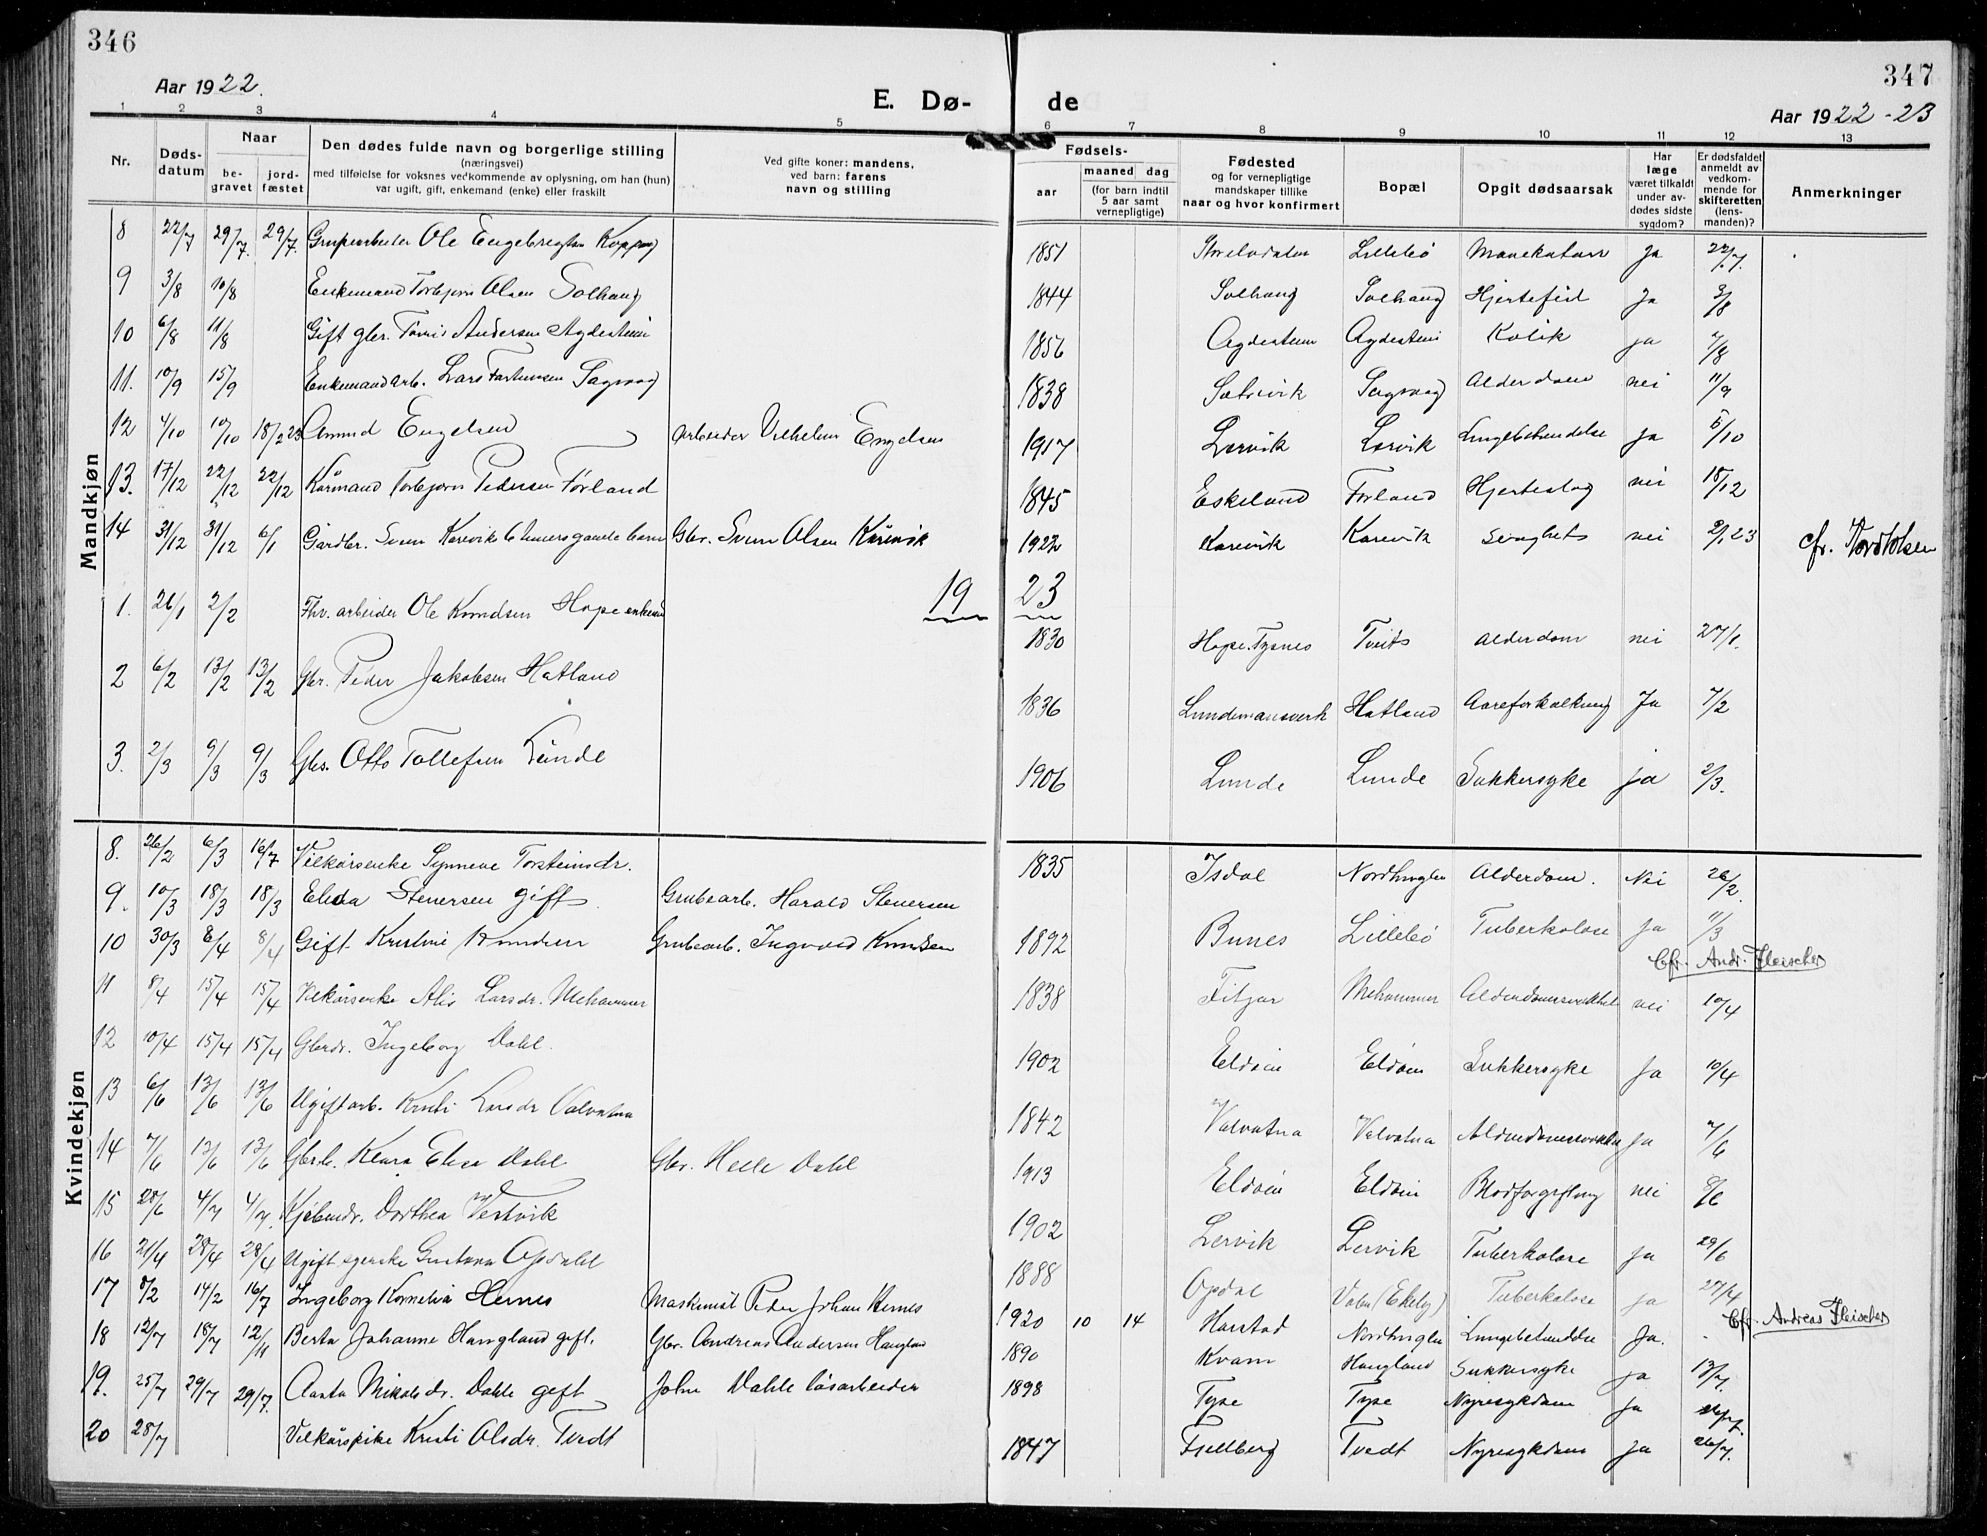 346
Aar 1922.
E. Dø-
1 2 3 4 5
Nr.
Døds-datum
Naar
be-gravet
jord-fæstet
Den dødes fulde navn og borgerlige stilling
(næringsvei)
med tilføielse for voksnes vedkommende av oplysning, om han (hun)
var ugift, gift, enkemand (enke) eller fraskilt
Ved gifte koner: mandens,
ved barn: farens
navn og stilling
Mandkjøn
8 22/7 29/7. 29/7. Ole Engebregtsen
9 3/8 10/8 Enkemand Torbjørn Olsen Solhaug
10 6/8 11/8 Gift gbr. Tønnis Andersen Agdestein
11. 10/9 15/9 Enkemand arb. Lars Sagvaag
12 4/10 10/10 18/2 23 Amund Engelsen Arbeider Vilhelm Engelsen
13. 17/12 22/12 22/12 Kårmand Torbjørn Pedersen Førland
14 31/12 31/12 6/1 Gårdbr. Sven Karevik Gbr. Sven Olsen Kårevik
19
1. 26/1 2/2 Fhv. arbeider Ole Knudsen Hope enkem
2 6/2 13/2 13/2 Gbr. Peder Jakobsen Hatland
3. 2/3 9/3 9/3 Gbs. Otto Tollefsen Lunde
Kvindekjøn
8. 26/2 6/3 16/7 Vilkårsenke Synneve Torsteinsdr.
9. 10/3 18/3 18/3 Elida Stenersen gift Grubearb. Harald Stenersen
10 30/3 8/4 8/4 Gift Kristine Knudsen Grubearb. Ingvald Knudsen
11 8/4 15/4 15/4 Vilkårsenke Alis Larsdr. Mehammer
12 10/4 15/4 15/4 Gbrdr. Ingeborg Dahl.
13 6/6 13/6 13/6 Ugift arb. Kristi Larsdr Valvatna
14 7/6 13/6 13/6 Klara Elisa Dahl Gbr. Helle Dahl
15 28/6 4/7 4/7. Dorthea Vestvik
16 21/4 28/4 28/4 Ugift Gustava Opdahl
17 8/2 14/2 16/7 Ingeborg Kornelia Hernes Maskinist Peder Johan Hernes
18 12/7 18/7 12/11 Berta Johanne Haugland gift. Gbr. Andreas Andersen Haugland
19. 25/7 29/7 29/7. Aasta Nikolsdr. Dahle gift John Dahle løsarbeider
20 28/7 Vilkårspike Kristi Olsdr. Tvedt
347
Aar 1922-23
de
6 7 8 9 10 11 12 13
Fødsels-
aar
maaned dag
(for barn indtil
5 aar samt
vernepligtige)
Fødested
og for vernepligtige
mandskaper tillike
naar og hvor konfirmert
Bopæl
Opgit dødsaarsak
Har
læge
været tilkaldt
under av-
dødes sidste
sygdom?
Er dødsfaldet
anmeldt av
vedkom-
mende for
skifteretten
(lens-
manden)?
Anmerkninger
1851 Storelvdalen Lillebø Mavekatarr Ja 22/7.
1844 Solhaug Solhaug Hjertefeil Ja 3/8
1856 Agdestein Agdestein Kolik ja 7/8
1838 Sætrevik Sagvaag Alderdom nei 11/9
1917 Lervik Lervik Lungebetændelse ja 5/10
1845 Eskeland Førland Hjerteslag nei 18/12
1922 Karevik Karevik Svaghet nei 2/1 23 cfr.
23
1830 Hope. Tysnes Tveita Alderdom nei 27/1.
1836 Lundemansverk Hatland Aareforkalkning Ja 7/2
1906 Lunde Lunde Sukkersyke ja 2/3.
1835 Isdal Nordhuglen Alderdom. Nei 26/2
1892 Bunes Lillebø Tuberkolose ja 11/3
Cfr. Andr. Fleischer
1838 Fitjar Mehammer Alderdomssvakhet nei 10/4
1902 Eldøin Eldøin Sukkersyke Ja 10/4
1842 Valvatna Valvatna Alderdomssvakhet ja 7/6
1913 Eldøin Eldøin Blodforgiftning nei 8/6
1902 Lervik Lervik Tuberkolose ja 29/6
1888 Opdal Valen (Ekely) Tuberkolose ja 27/4
Cfr. Andreas Fleischer
1920 10 14 Harstad Nordhuglen Lungebetændelse Ja.
1890 Kvam Haugland Sukkersyke ja 13/7.
1898 Tyse Tyse Nyresykdom Ja 26/7.
1847 Fjellberg Tvedt Nyresykdom Ja 26/7.